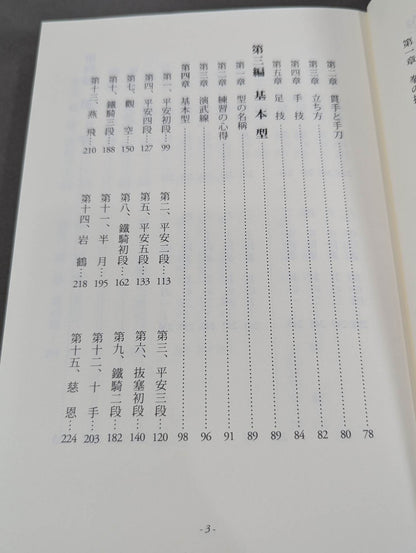 第一章　拳の
第二章　貫手と手刀……78
第三章　立ち方……80
第四章　手　技……82
第五章　足　技……84
第三編　基本型……89
第一章　型の名柄……89
第二章　練習の心得……91
第三章　演武線……96
第四章　基本型……98
第一、平安初段…99　第二、平安二段…113　第三、平安三段…120
第四、平安四段…127　第五、平安五段…133　第六、抜塞初段…140
第七、觀　空…150　第八、鐵騎初段…162　第九、鐵騎二段…182
第十、鐵騎三段…188　第十一、半　月…195　第十二、十　手…203
第十三、燕　飛…210　第十四、岩　鶴…218　第十五、慈　恩…224
- 3 -